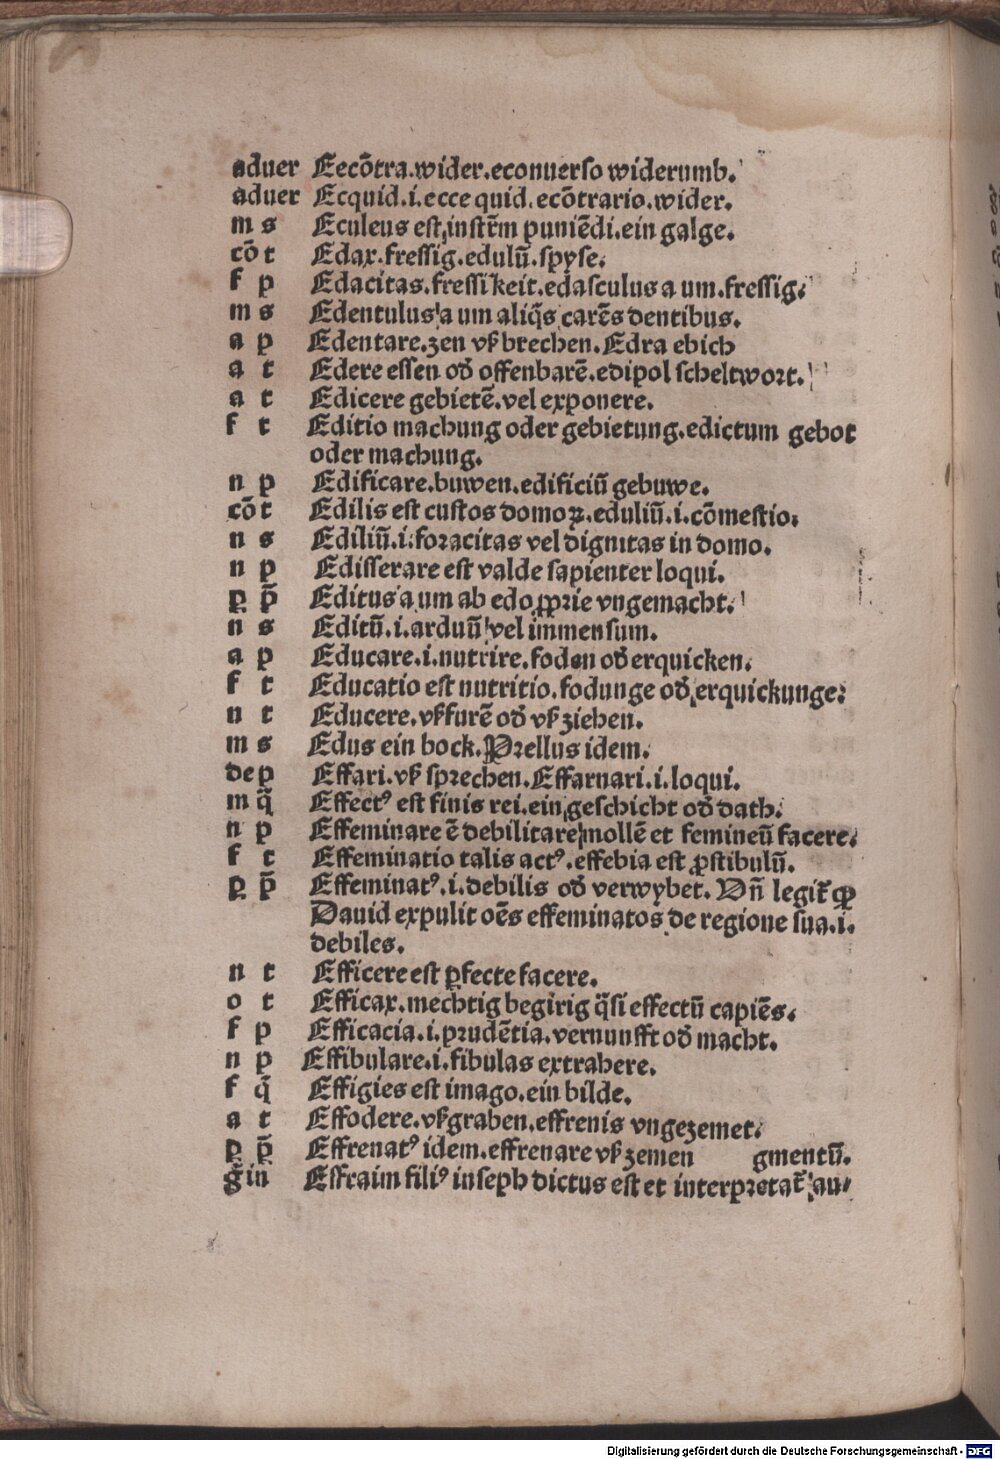 aduer Eecōtra.wider.econuerso widerumb.
aduer Ecquid.i.ecce quid.ecōtrario.wider.
m s Eculeus est instr̄m puniēdi.ein galge.
cōt Edax.fressig.edulū.spyse.
f p Edacitas.fressikeit.edasculus a um.fressig.
m s Edentulus a um aliq̄s carēs dentibus.
a p Edentare.zen vß brechen.Edra ebich
a t Edere essen od̕ offenbarē.edipol scheltwort.
a t Edicere gebietē.vel exponere.
f t Editio machung oder gebietung.edictum gebot
oder machung.
n p Edificare.buwen.edificiū gebuwe.
cōt Edilis est custos domoꝝ.eduliū.i.cōmestio.
n s Ediliū.i.foracitas vel dignitas in domo.
n p Edisserare est valde sapienter loqui.
ꝑ p̄ Editus a um ab edo ꝓprie vngemacht.
n s Editū.i.arduū vel immensum.
a p Educare.i.nutrire.foden od̕ erquicken.
f t Educatio est nutritio.fodunge od̕ erquickunge.
n t Educere.vßfurē od̕ vß ziehen.
m s Edus ein bock.Prellus idem.
dep Effari.vß sprechen.Effarnari.i.loqui.
m q̄ Effectꝰ est finis rei.ein geschicht od̕ dath.
n p Effeminare ē debilitare mollē et femineū facere.
f t Effeminatio talis actꝰ.effebia est ꝓstibulū.
ꝑ p̄ Effeminatꝰ.i.debilis od̕ verwybet. Vn̄ legit̄ ꝙ
Dauid expulit oēs effeminatos de regione sua.i.
debiles.
n t Efficere est ꝑfecte facere.
o t Efficax.mechtig begirig q̄si effectū capiēs.
f p Efficacia.i.prudētia.vernunfft od̕ macht.
n p Effibulare.i.fibulas extrahere.
f q̄ Effigies est imago.ein bilde.
a t Effodere.vßgraben.effrenis vngezemet.
ꝑ p̄ Effrenatꝰ idem.effrenare vß zemen gmentū.
ḡ in Effraim filiꝰ inseph dictus est et interpretat̄ au⸗
Digitalisierung gefördert durch die Deutsche Forschungsgemeinschaft - DFG